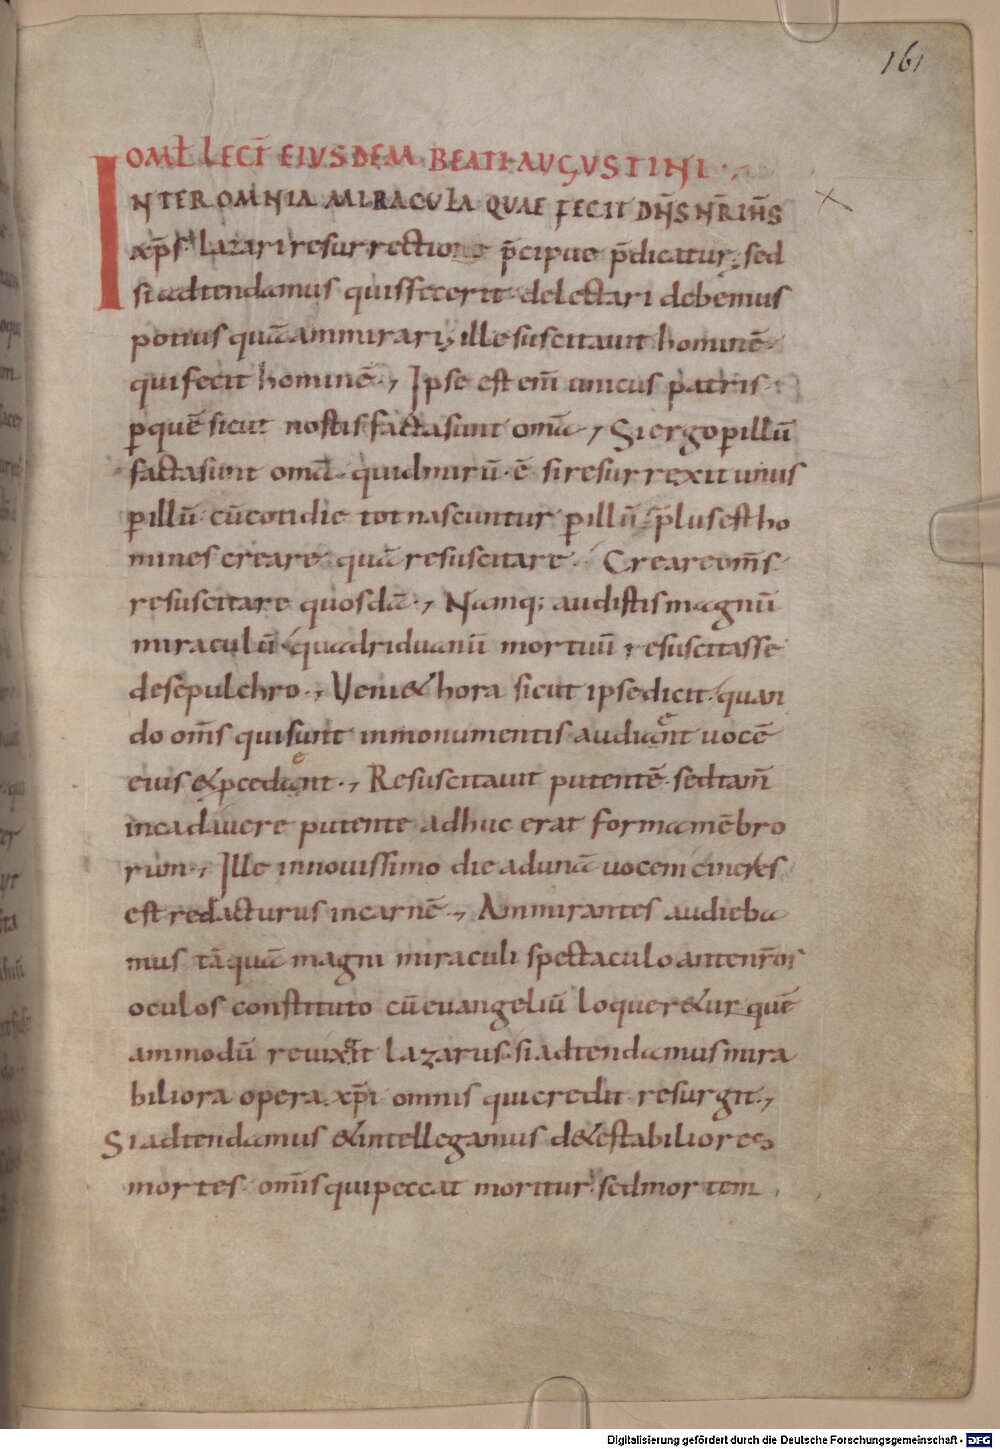 161
OML̄ LECT̄ EIUSDEM BEATI AUGUSTINI
INTER OMNIA MIRACULA QUAE FECIT DN̄S NR̄ IH̄S
xp̄s lazari resurrectione p̄cipue p̄dicatur; sed
si adtendamus quis fecerit delectari debemus
potius quā ammirari; ille suscitauit hominē
qui fecit hominē., Ipse est enī unicus patris
ꝑ quē sicut nostis facta sunt omīa, Si ergo ꝑ illū
facta sunt omīa quid mirū ē si resurrexit unus
ꝑ illū cū cotidie tot nascuntur ꝑ illū plus est ho
mines creare quā resuscitare. Creare om̄s
resuscitare quosdā., Namq; audistis magnū
miraculū quadriduanū mortuū resuscitasse
de sepulchro., Veni& hora sicut ipse dicit quan
do om̄s qui sunt in monumentis audiant uocē
eius & ꝓcediant., Resuscitauit putentē sed tam̄
in cadauere putente adhuc erat forma mēbro
rum., Ille in nouissimo die ad unā uocem cineres
est redacturus in carnē., Ammirantes audieba
mus tāquā magni miraculi spectaculo ante nr̄os
oculos constituto cū euangeliū loquer&ur quē
ammodū reuixit lazarus si adtendamus mira
biliora opera xp̄i omnis qui credit resurgit.,
Si adtendamus & intellegamus det&estabiliores
mortes om̄is qui peccat moritur sed mortem